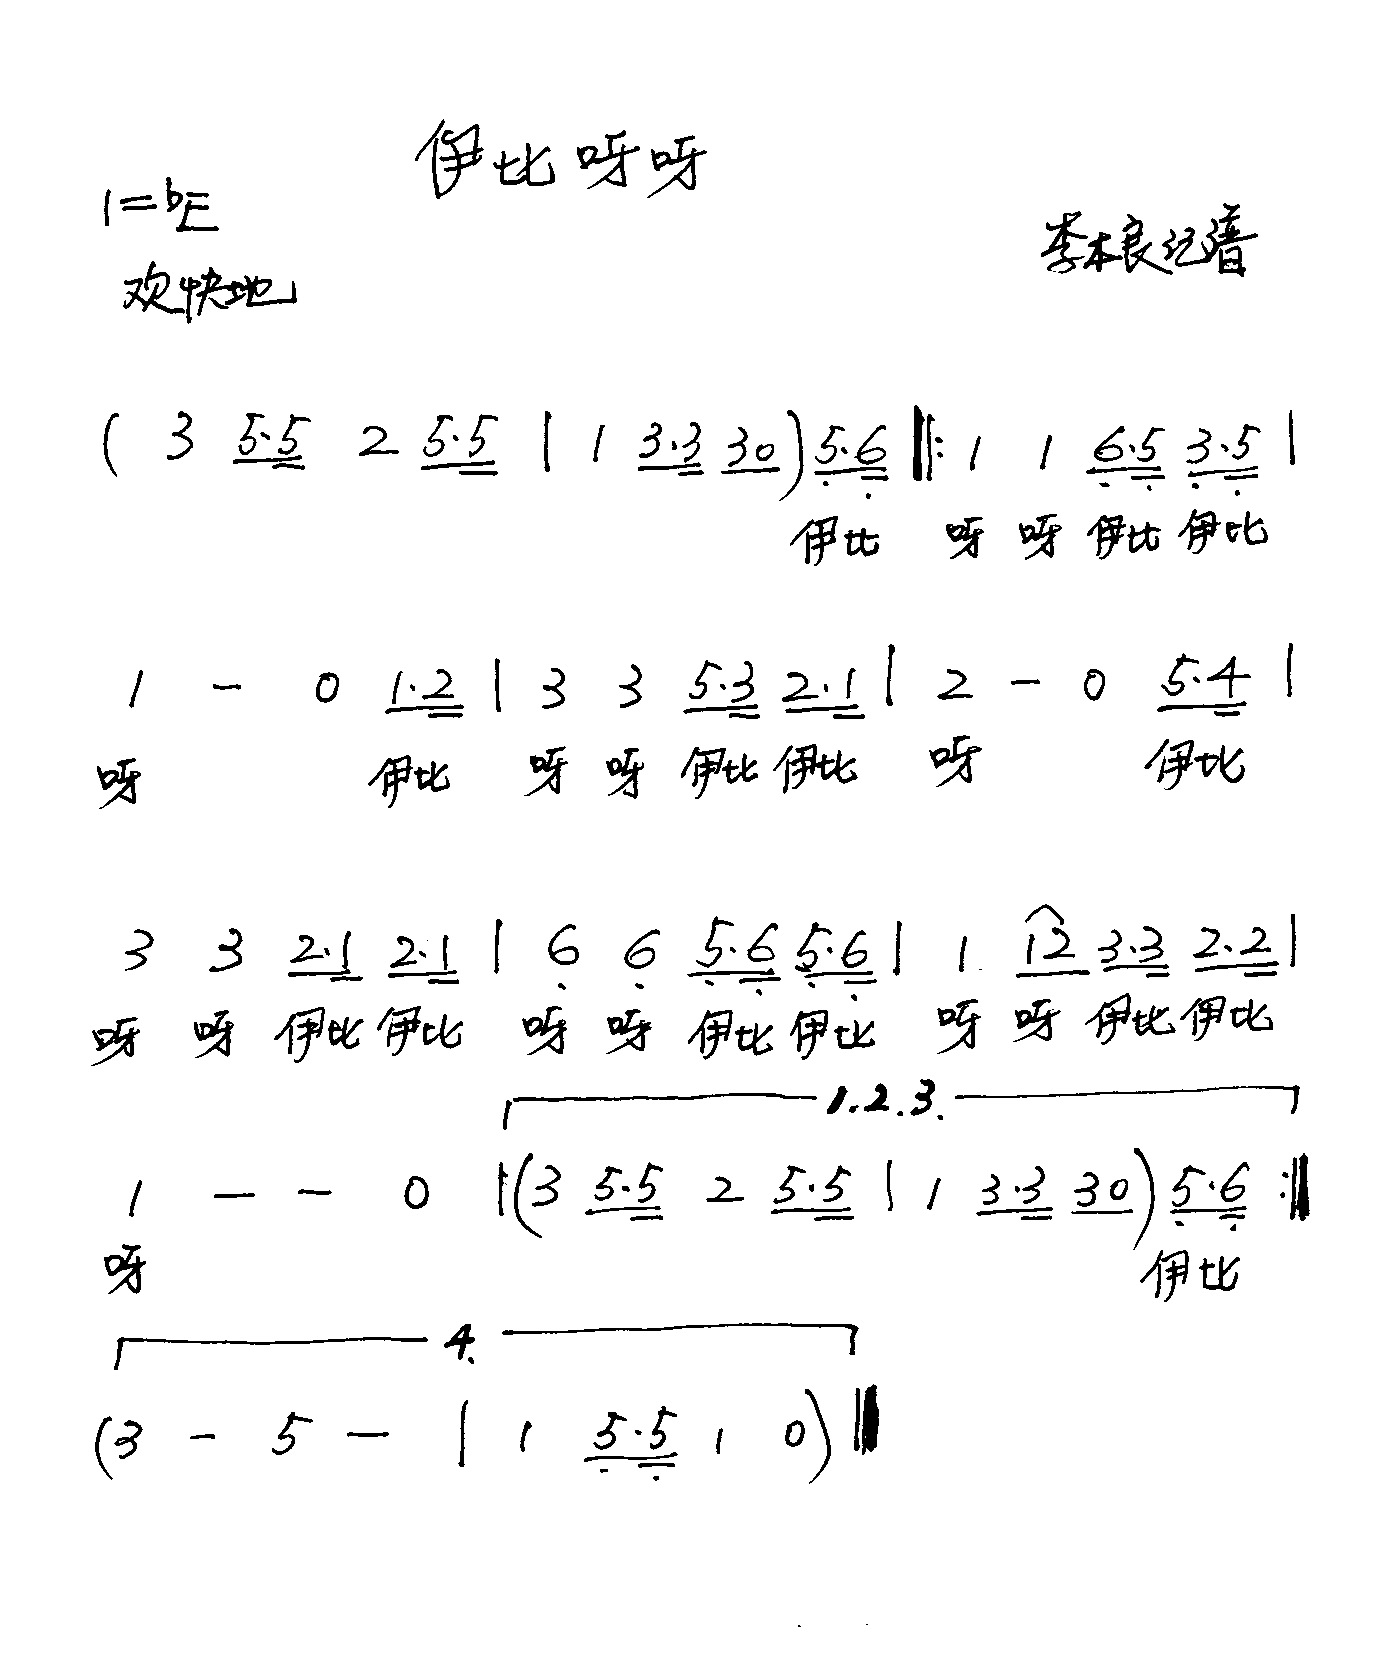 伊比呀呀
1=bE
李本良记谱
欢快地
( 3 5·5 2 5·5 | 1 3·3 30 ) 5·6 ‖: 1 1 6·5 3·5 |
伊比 呀 呀 伊比 伊比
1 - 0 1·2 | 3 3 5·3 2·1 | 2 - 0 5·4 |
呀 伊比 呀 呀 伊比 伊比 呀 伊比
3 3 2·1 2·1 | 6 6 5·6 5·6 | 1 12 3·3 2·2 |
呀 呀 伊比 伊比 呀 呀 伊比 伊比 呀 呀 伊比 伊比
1.2.3.
1 - - 0 | ( 3 5·5 2 5·5 | 1 3·3 30 ) 5·6 :‖
呀 伊比
4.
( 3 - 5 - | 1 5·5 1 0 ) ‖